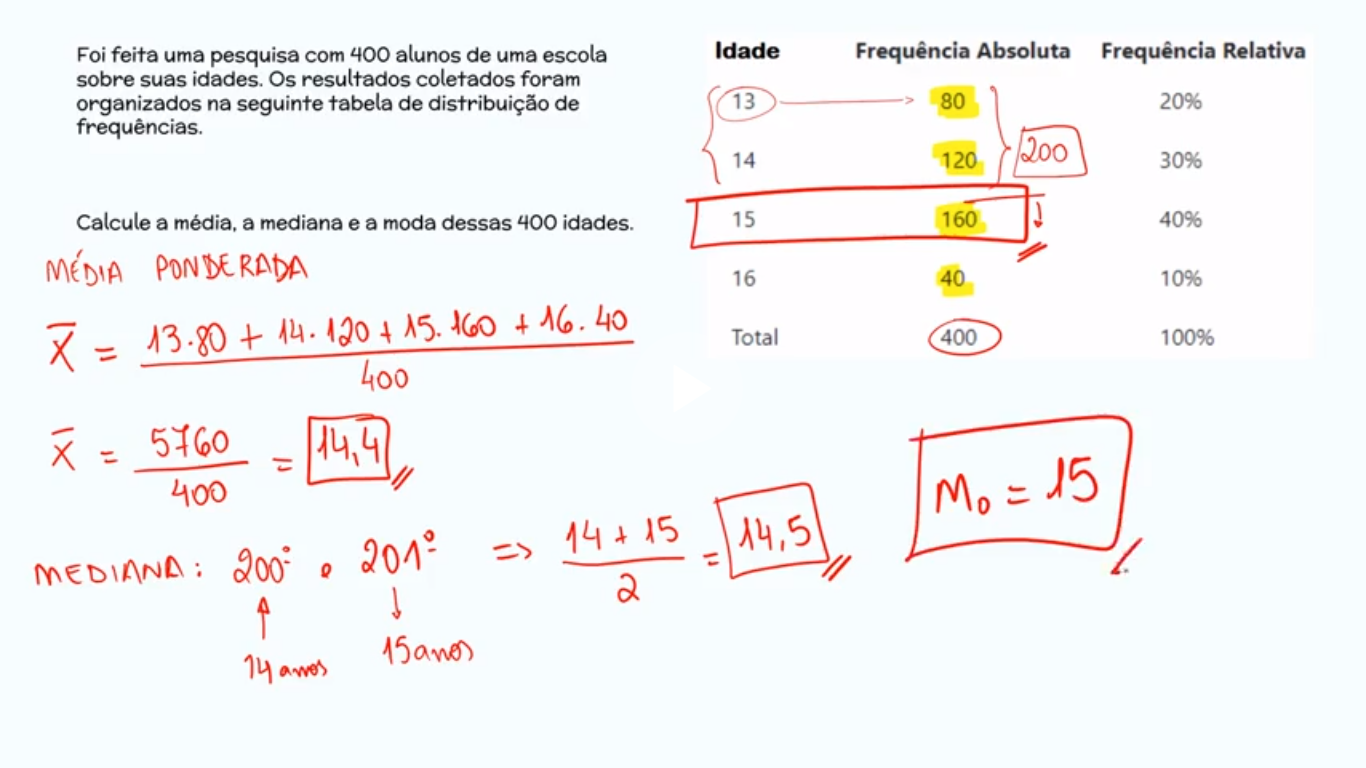 Foi feita uma pesquisa com 400 alunos de uma escola
sobre suas idades. Os resultados coletados foram
organizados na seguinte tabela de distribuição de
frequências.
Calcule a média, a mediana e a moda dessas 400 idades.
Idade Frequência Absoluta Frequência Relativa
13 80 20%
14 120 30%
200
15 160 40%
16 40 10%
Total 400 100%
MÉDIA PONDERADA
X̅ = 13.80 + 14.120 + 15.160 + 16.40
400
X̅ = 5760 = 14,4
400
MEDIANA: 200º e 201º => 14 + 15 = 14,5
2
14 anos 15 anos
Mo = 15